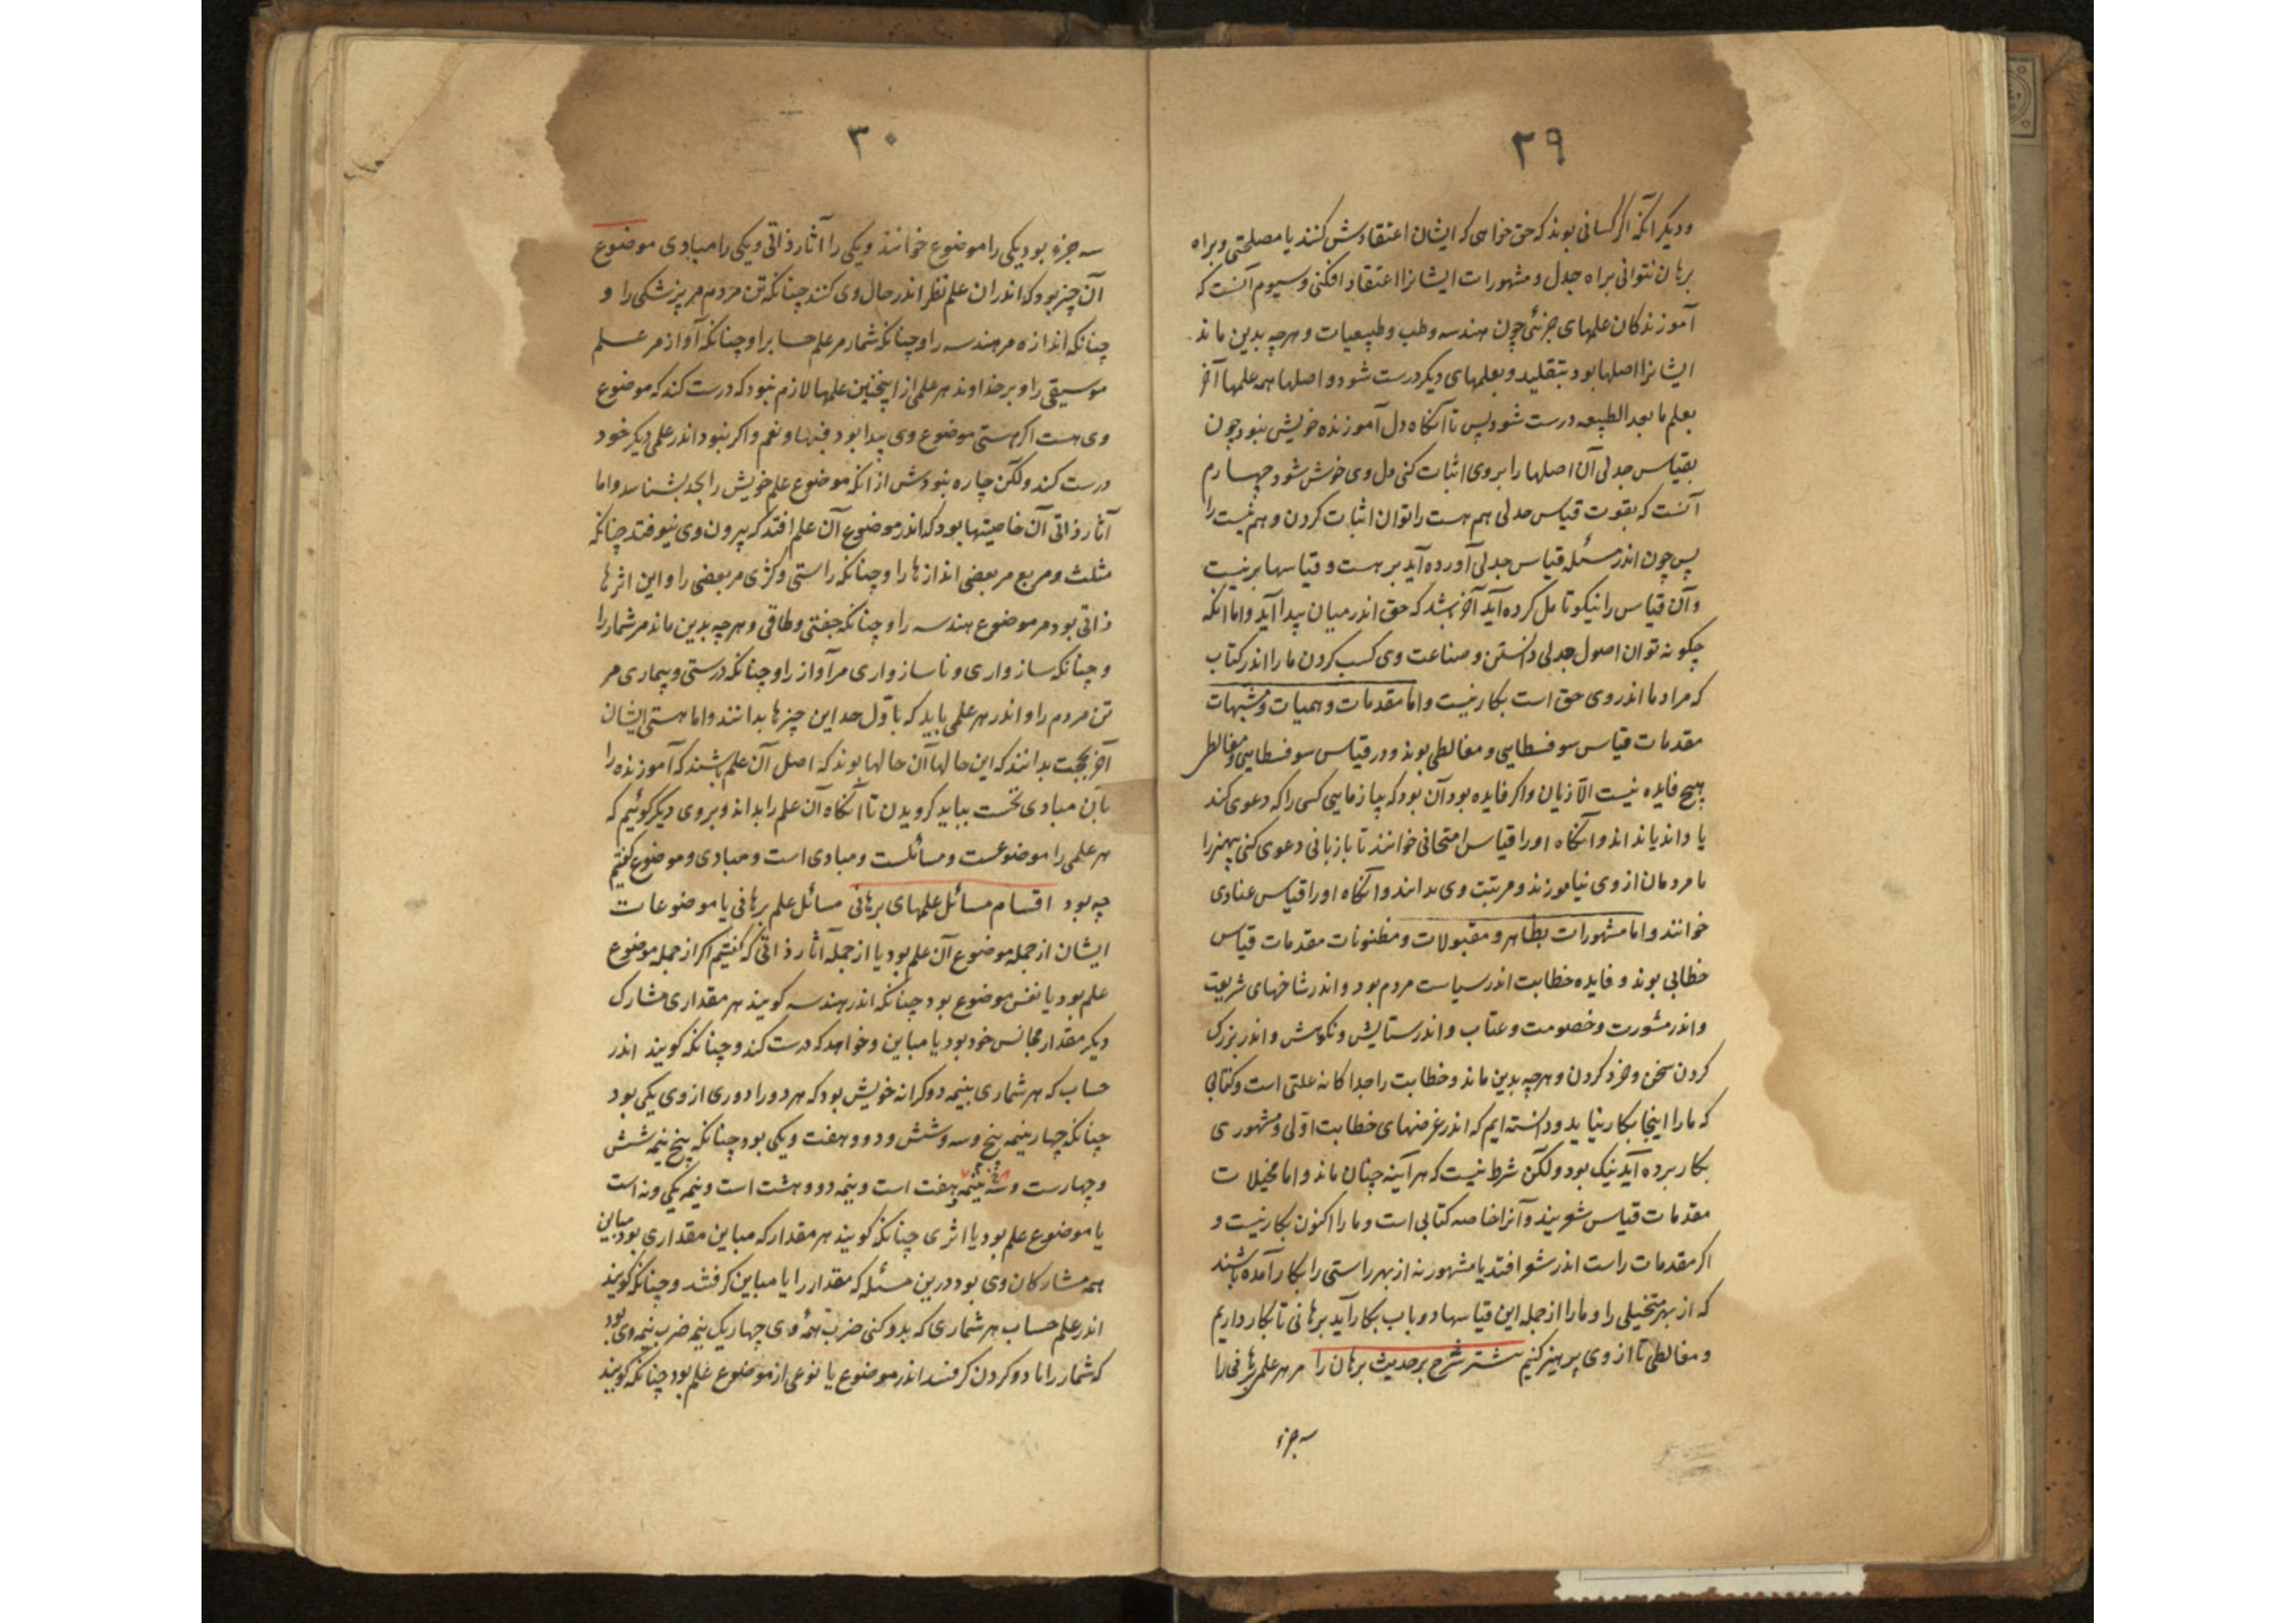 ۲۹
ودیگر آنکه اگر کسانی بوند که حق خواهی که ایشان اعتقادش کنند یا مصلحتی وبراه
برهان نتوانی براه جدل و مشهورات ایشانرا اعتقاد افکنی وسیوم آنست که
آموزندکان علمهای جزئی چون هندسه وطب وطبیعیات و هرچه بدین ماند
ایشانرا اصلها بود بتقلید و بعلمهای دیگر درست شود و اصلها همه علمها آخر
بعلم ما بعد الطبیعه درست شود پس تا آنگاه دل آموزنده خویش نبود چون
بقیاس جدلی آن اصلها را بروی اثبات کنی دل وی خوش شود چهارم
آنست که بقوت قیاس جدلی هم هست را توان اثبات کردن و هم نیست را
پس چون اندر مسئله قیاس جدلی آورده آید بر هست و قیاسها بر نیست
وآن قیاس را نیکو تامل کرده آید آخر باشد که حق اندر میان پیدا آید واما انکه
چگونه توان اصول جدلی دانستن و صناعت وی کسب کردن ما را اندر کتاب
که مراد ما اندروی حق است بکار نیست واما مقدمات وهمیات و مشبهات
مقدمات قیاس سوفسطایی و مغالطی بوند ودر قیاس سوفسطایی و مغالطی
هیچ فایده نیست الا زیان واکر فایده بود آن بود که بیازمایی کسی را که دعوی کند
یا داند یا نداند وآنگاه اورا قیاس امتحانی خوانند تا باز
تا مردمان از وی نیاموزند ومرتبت وی بدانند وآنگاه اورا قیاس عنادی
خوانند واما مشهورات بظاهر و مقبولات و مظنونات مقدمات قیاس
خطابی بوند و فایده خطابت اندر سیاست مردم بود و اندر شاخهای شریعت
واندر مشورت و خصومت و عتاب و اندر ستایش ونکوهش و اندر بزرک
کردن سخن و خرد کردن و هرچه بدین ماند و خطابت را جداکانه علتی است وکتابی
که ما را اینجا بکار نیاید ودانسته ایم که اندر غرضهای خطابت اولی و مشهوری
بکار برده آید نیک بود ولکن شرط نیست که هر آینه چنان ماند و اما مخیلات
مقدمات قیاس شعریند وآنرا خاصه کتابی است و ما را اکنون بکار نیست و
اکر مقدمات راست اندر شعر افتد یا مشهور نه از بهر راستی را بکار آمده باشند
که از بهر متخیلی را و ما را از جمله این قیاسها دو باب بکار آید برهانی تا بکار داریم
و مغالطی تا از وی پرهیز کنیم بیشتر شرح بر حدیث برهان را مر هر علمی برهانی را
سه جزء
۳۰
سه جزء بود یکی را موضوع خوانند ویکی را آثار ذاتی ویکی را مبادی موضوع
آن چیز بود که اندر ان علم نظر اندر حال وی کنند چنانکه تن مردم مر پزشکی را و
چنانکه اندازه مر هندسه را و چنانکه شمار مر علم حساب را و چنانکه آواز مر علم
موسیقی را و بر خداوند هر علمی از اینچنین علمها لازم نبود که درست کند که موضوع
وی هست اکر هستی موضوع وی پیدا بود فبها و نعم واکر نبود اندر علمی دیگر خود
درست کند ولکن چاره نبودش از آنکه موضوع علم خویش را بحد بشناسد واما
آثار ذاتی آن خاصیتها بود که اندر موضوع آن علم افتد که بیرون وی نیوفتد چنانکه
مثلث ومربع مر بعضی اندازها را و چنانکه راستی و کژی مر بعضی را و این اثرها
ذاتی بود مر موضوع هندسه را و چنانکه جفتی وطاقی و هرچه بدین ماند مر شمار را
و چنانکه سازواری و ناسازواری مر آواز را و چنانکه درستی و بیماری مر
تن مردم را و اندر هر علمی باید که باول حد این چیزها بدانند واما هستی ایشان
آخر بحجت بدانند که این حالها آن حالها بوند که اصل آن علم باشند که آموزنده را
بان مبادی نخست بباید کرویدن تا آنگاه آن علم را بداند وبروی دیگر گوئیم که
هر علمی را موضوعست و مسائلست و مبادی است و مبادی و موضوع گفتیم
چه بود اقسام مسائل علمهای برهانی مسائل علم برهانی یا موضوعات
ایشان از جمله موضوع آن علم بود یا از جمله آثار ذاتی که گفتیم اکر از جمله موضوع
علم بود یا نفس موضوع بود چنانکه اندر هندسه کویند هر مقداری مشارک
دیگر مقدار مجانس خود بود یا مباین وخواهد که درست کند و چنانکه کویند اندر
حساب که هر شماری بنیمه دو کرانه خویش بود که هر دو را دوری از وی یکی بود
چنانکه چهار نیمه پنج وسه وشش ودو و هفت ویکی بود چنانکه پنج نیمه شش
وچهارست وسه نیمه هفت است ونیمه دو و هشت است ونیمه یکی ونه است
یا موضوع علم بود یا اثری چنانکه کویند هر مقدار که مباین مقداری بود مباین
همه مشارکان وی بود درین مسئله که مقدار را با مباین کرفتند و چنانکه کویند
اندر علم حساب هر شماری که بدو کنی ضرب همه وی چهار یک نیم ضرب نیمه وی بود
که شمار را با دو کردن کرفتند اندر موضوع یا نوعی از موضوع علم بود چنانکه کویند